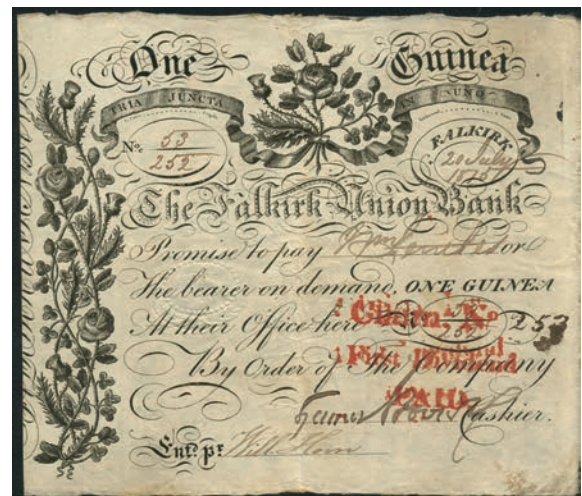 One Guinea
TRIA JUNCTA IN UNO
No. 53
252
FALKIRK
20 July
1815
The Falkirk Union Bank
Promise to pay or
The bearer on demand, ONE GUINEA
At their Office here 253
Claim, No
First Dividend
By Order of The Company
PAID
Cashier.
Entd. pr. Will Horn